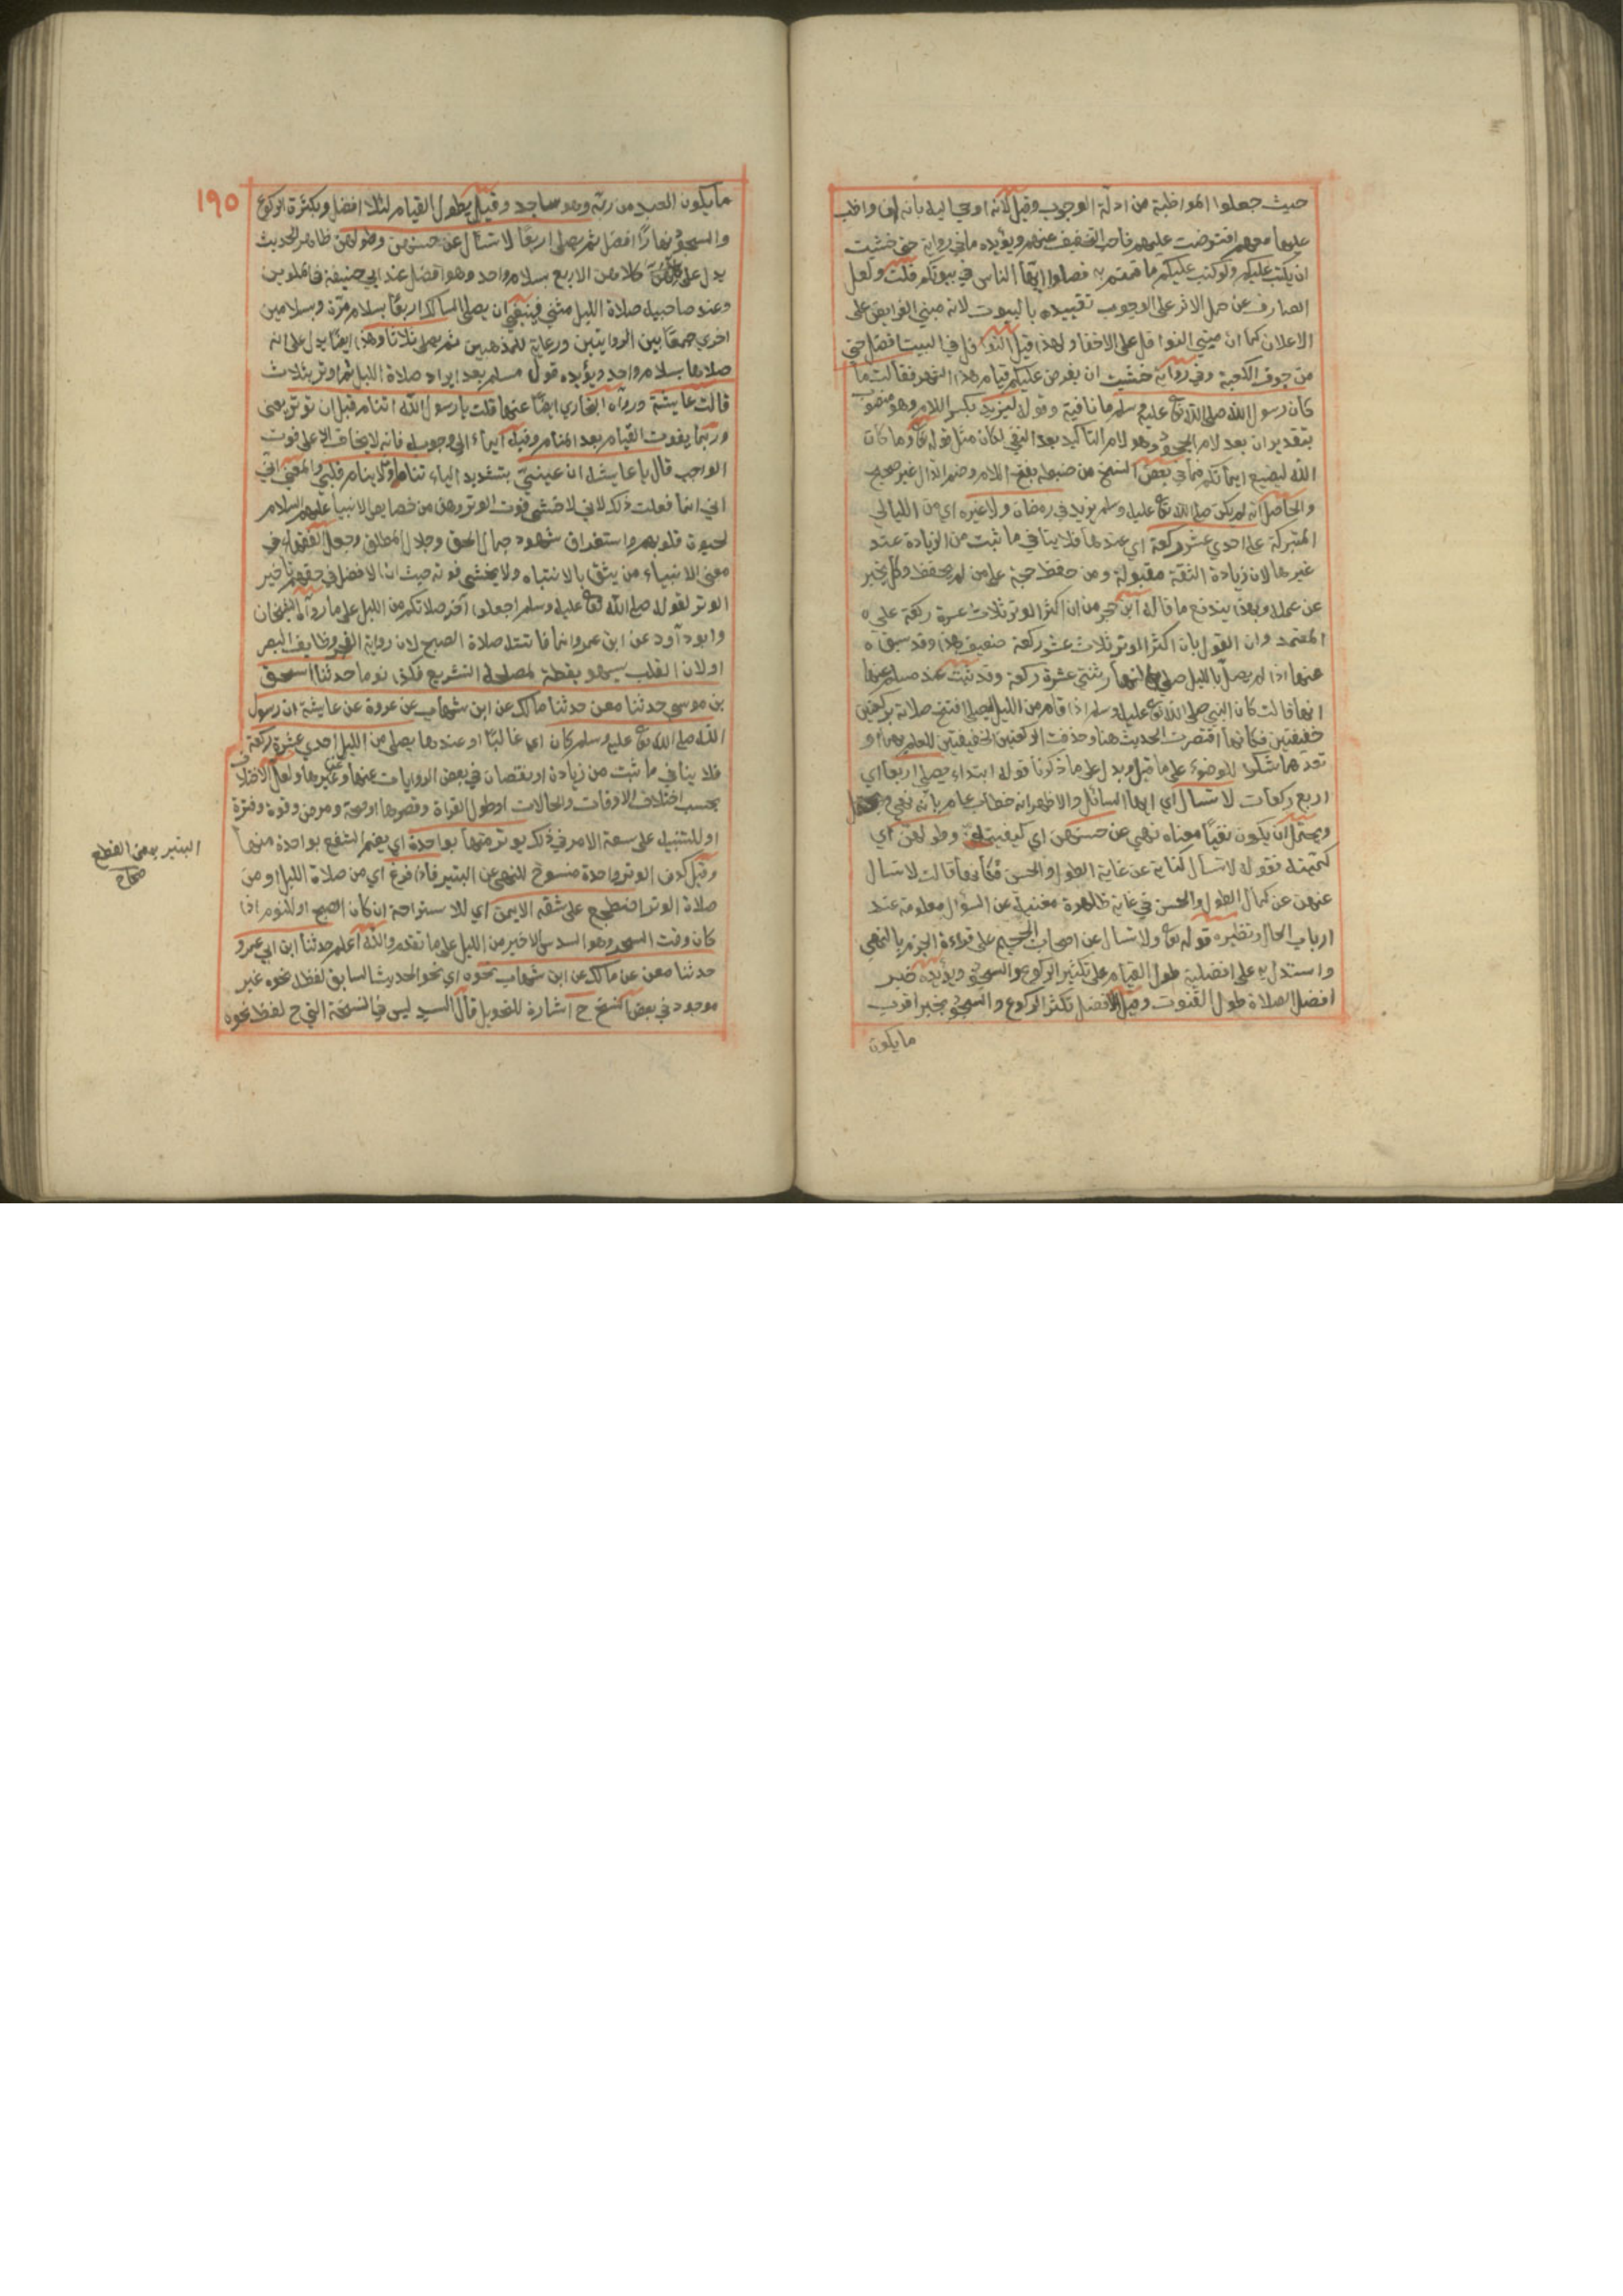 حيث جعلوا المواظبة من ادلة الوجوب وقيل لانه اوحي اليه بانه ان واظب
عليها معهم افترضت عليهم فاحب التخفيف عنهم ويؤيده ما في رواية حتى خشيت
ان يكتب عليكم ولو كتب عليكم ما قمتم به فصلوا ايها الناس في بيوتكم قلت ولعل
الصارف عن حمل الامر على الوجوب تقييده بالبيوت لانه مبني الفرايض على
الاعلان كما ان مبني النوافل على الاخفا ولهذا قيل النوافل في البيت افضل حتى
من جوف الكعبة وفي رواية خشيت ان يفرض عليكم قيام هذا الشهر فقالت ما
كان رسول الله صلى الله تع عليه وسلم ما نافية وقوله ليزيد بكسر اللام وهو منصوب
بتقدير ان بعد لام الجحود وهو لام التاكيد بعد النفي لكان مثل قوله تع وما كان
الله ليضيع ايمانكم فما في بعض النسخ من ضبطه بفتح اللام وضم الدال غير صحيح
والحاصل انه لم يكن صلى الله تع عليه وسلم يزيد في رمضان ولا غيره اي من الليالي
المتبركة على احدي عشر ركعة اي عندها فلا ينافي ما ثبت من الزيادة عند
غيرها لان زيادة الثقة مقبولة ومن حفظ حجة على من لم يحفظ وكل يخبر
عن عمله وبهذا يندفع ما قاله ابن حجر من ان اكثر الوتر ثلاث عشرة ركعة على
المعتمد وان القول بان اكثر الوتر ثلاث عشر ركعة ضعيف هذا وقد سبق
عنها اذا لم يصل بالليل صلى من النهار ثنتي عشرة ركعة وقد ثبت عند مسلم عنها
انها قالت كان النبي صلى الله تع عليه وسلم اذا قام من الليل ليصلي افتتح صلاته بركعتين
خفيفتين فكانها اقتصرت الحديث هنا وحذفت الركعتين الخفيفتين للعلم بهما او
تعدهما شكرا للوضوء على ما قيل ويدل على ما ذكرنا قوله ابتداء يصلي اربعا اي
اربع ركعات لا تسال اي ايها السائل والاظهر انه خطاب عام بانه نهي
ويحتمل ان يكون نفيا معناه نهي عن حسنهن اي كيفيتهن وطولهن اي
كميته فقوله لا تسال كناية عن غاية الطول والحسن فكانها قالت لا تسال
عنهن عن كمال الطول والحسن في غاية ظاهرة مغنية عن السؤال معلومة عند
ارباب الحال ونظيره قوله تع ولا تسال عن اصحاب الجحيم على قراءة الجزم بالنهي
واستدل به على افضلية طول القيام على تكثير الركوع والسجود ويؤيده خبر
افضل الصلاة طول القنوت وقيل الافضل تكثر الركوع والسجود بخبر اقرب
ما يكون
١٩٥
ما يكون العبد من ربه وهو ساجد وقيل يطول القيام ليلا افضل وبكثرة الركوع
والسجود نهارا افضل ثم يصلي اربعا لا تسال عن حسنهن وطولهن ظاهر الحديث
يدل على ان كلا من الاربع بسلام واحد وهو افضل عند ابي حنيفة في الملوين
وعند صاحبيه صلاة الليل مثنى فينبغي ان يصلي السالك اربعا بسلام مرة وبسلامين
اخري جمعا بين الروايتين ورعاية للمذهبين ثم يصلي ثلاثا وهذا ايضا يدل على انه
صلاها بسلام واحد ويؤيده قول مسلم بعد ايراد صلاة الليل ثم اوتر بثلاث
قالت عايشة ورواه البخاري ايضا عنها قلت يا رسول الله اتنام قبل ان توتر يعني
وربما يفوت القيام بعد المنام وفيه ايماء الي وجوبه فانه لا يخاف الا على فوت
الواجب قال يا عايشة ان عينيّ بتشديد الياء تنامان ولا ينام قلبي والمعنى اني
اني انما فعلت ذلك لاني لا خشى فوت الوتر وهذا من خصايص الانبيا عليهم السلام
لحيوة قلوبهم واستغراق شهود جمال الحق وجلال المطلق وجعل الفقهاء في
معنى الانبياء من يثق بالانتباه ولا يخشى فوته حيث ان الافضل في حقهم تاخير
الوتر لقوله صلى الله تع عليه وسلم اجعلوا آخر صلاتكم من الليل على ما رواه الشيخان
وابو داود عن ابن عمر وانما فاتته صلاة الصبح لان رواية الفجر وظايف البصر
اولان القلب يسهو يقظة لمصلحة التشريع فكذا نوما حدثنا اسحق
بن موسى حدثنا معن حدثنا مالك عن ابن شهاب عن عروة عن عايشة ان رسول
الله صلى الله تع عليه وسلم كان اي غالبا او عندها يصلي من الليل احدي عشرة ركعة
فلا ينافي ما ثبت من زيادة او نقصان في بعض الروايات عنها وعن غيرها ولعل الاختلاف
بحسب اختلاف الاوقات والحالات او طول القراة وقصرها او صحة ومرض وقوة وفترة
او للتنبيه على سعة الامر في ذلك يوتر منها بواحدة اي يضم الشفع بواحدة منها
وقيل كون الوتر واحدة منسوخ للنهي عن البتير فاذا فرغ اي من صلاة الليل او من
صلاة الوتر اضطجع على شقه الايمن اي للاستراحة ان كان الصبح او للنوم اذا
كان وقت السحر وهو السدس الاخير من الليل على ما تقدم والله اعلم حدثنا ابن ابي عمرو
حدثنا معن عن مالك عن ابن شهاب نحوه اي نحو الحديث السابق لفظه نحوه غير
موجود في بعض النسخ ح اشارة للتحويل قال السيد ليس في النسخة التي ح لفظ نحوه
البتير بمعن القطع
صحاح